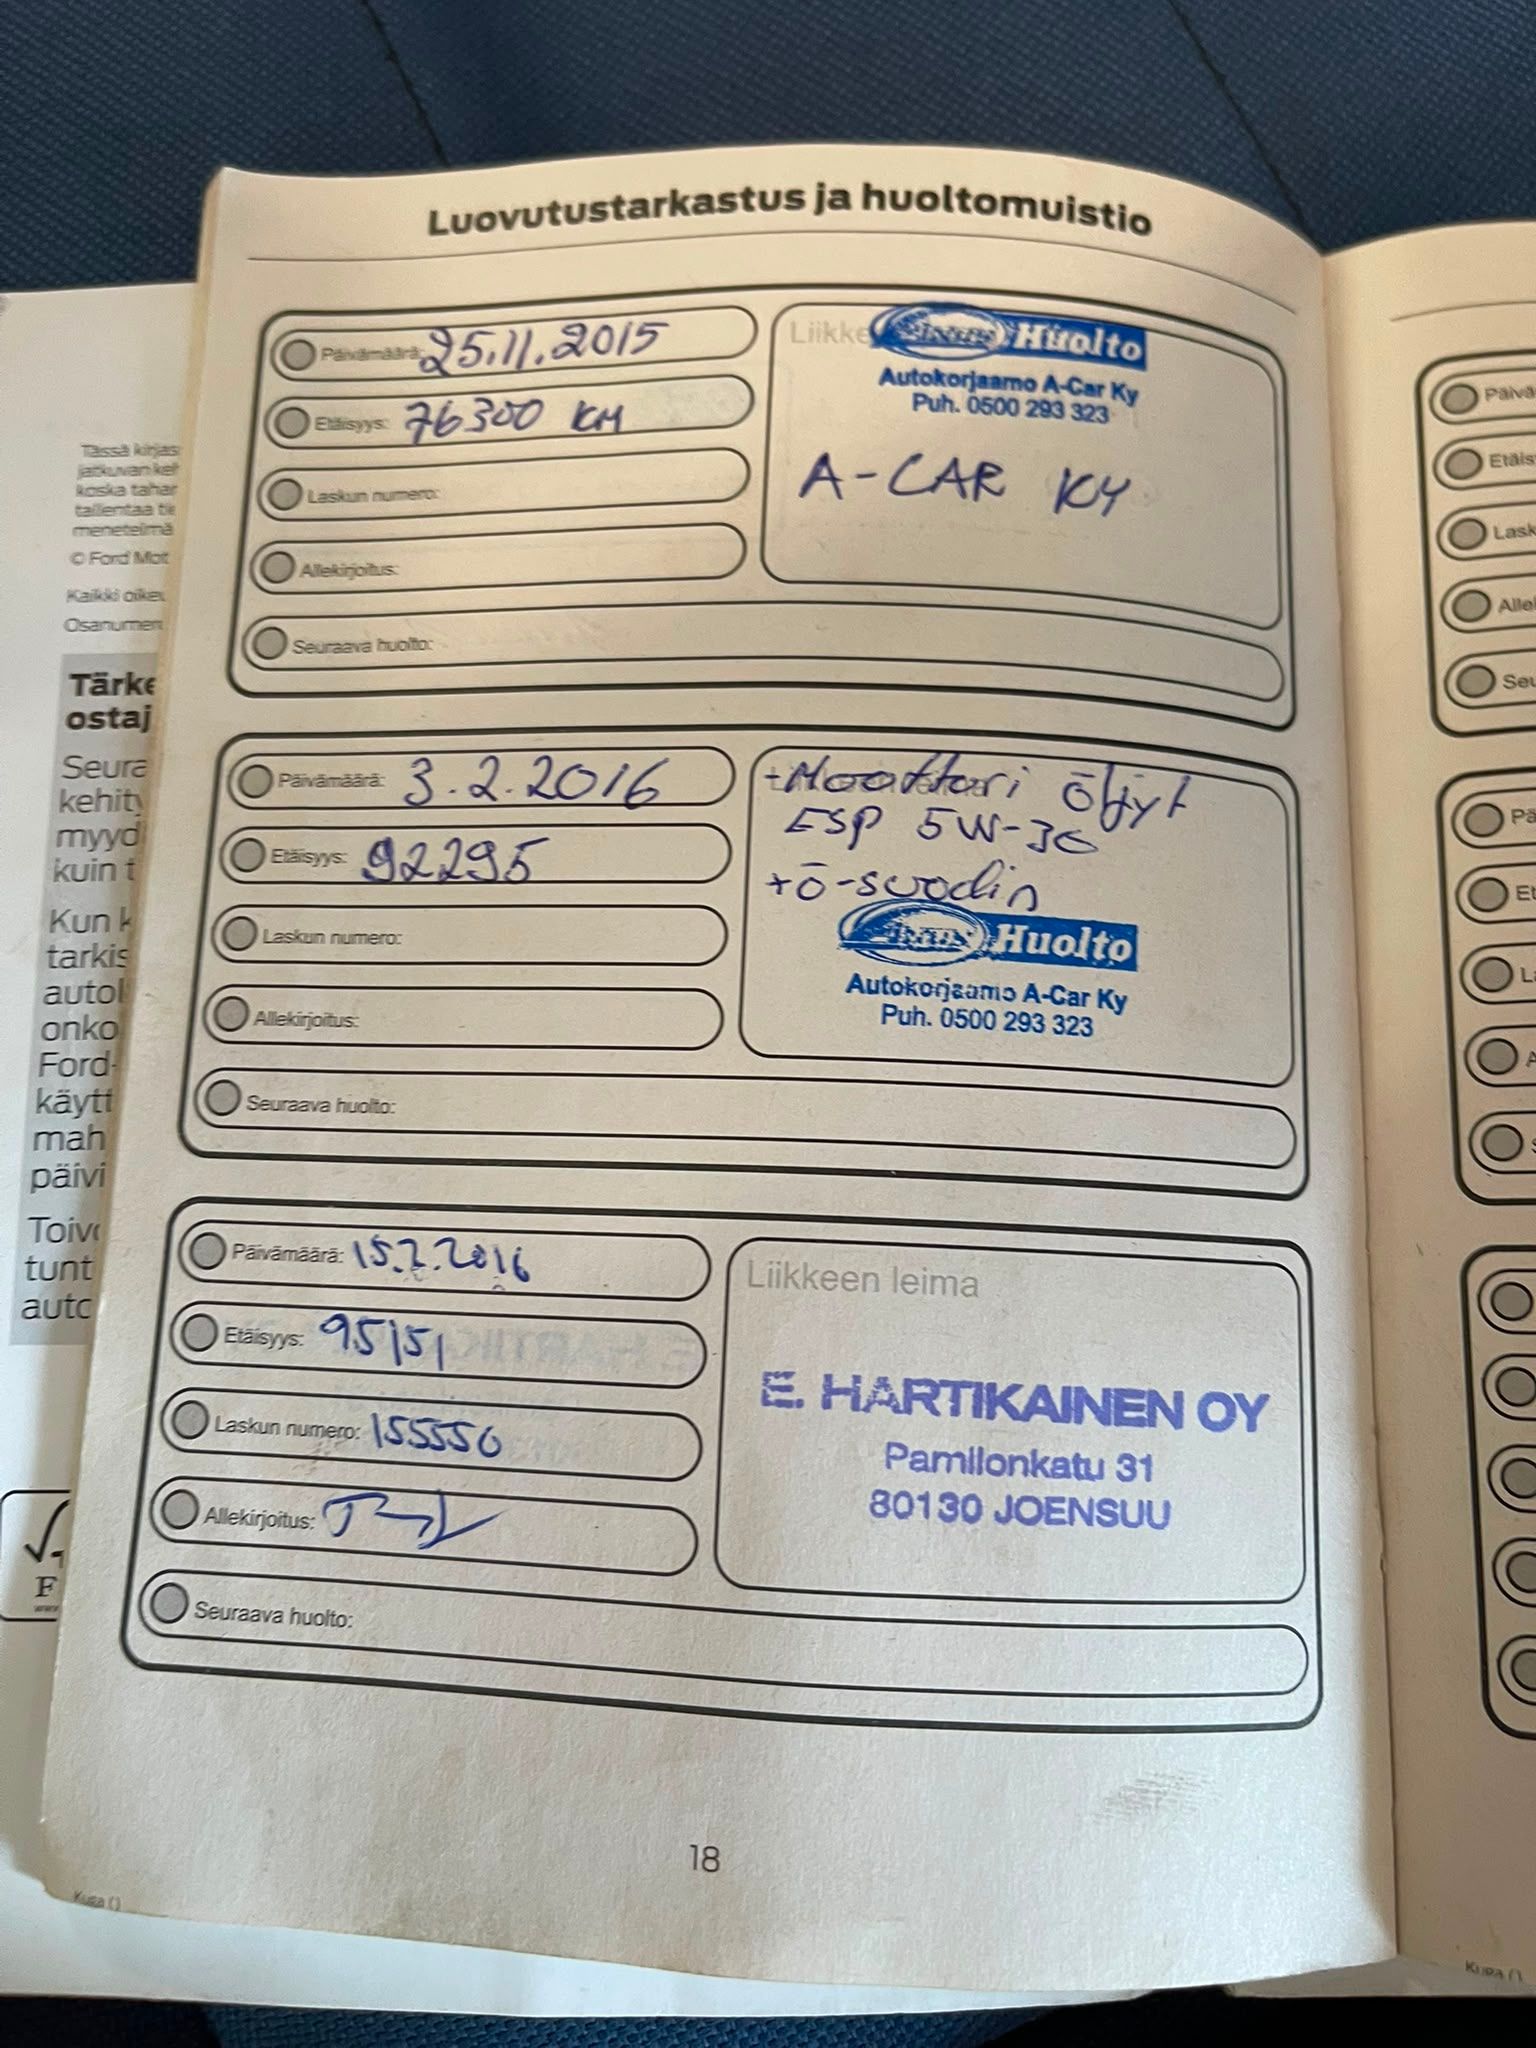 Luovutustarkastus ja huoltomuistio
Päivämäärä: 25.11.2015
Etäisyys: 76300 KM
Laskun numero:
Allekirjoitus:
Seuraava huolto:
Liikke
Huolto
Autokorjaamo A-Car Ky
Puh. 0500 293 323
A-CAR KY
Päivämäärä: 3.2.2016
Etäisyys: 92295
Laskun numero:
Allekirjoitus:
Seuraava huolto:
-Moottori öljyt
ESP 5W-30
+ö-suodin
Huolto
Autokorjaamo A-Car Ky
Puh. 0500 293 323
Päivämäärä: 15.2.2016
Etäisyys: 95151
Laskun numero: 155550
Allekirjoitus:
Seuraava huolto:
Liikkeen leima
E. HARTIKAINEN OY
Pamilonkatu 31
80130 JOENSUU
18
Kuga ()
Tässä kirjas
jatkuvan keh
koska tahan
tallentaa tie
menetelmä
© Ford Mot
Kaikki oikeu
Osanumero
Tärke
ostaj
Seura
kehity
myyd
kuin t
Kun k
tarkis
autol
onko
Ford-
käytt
mah
päivi
Toivo
tunt
auto
F
www
Päivä
Etäis
Lask
Allel
Seu
Pä
Et
La
A
S
Kuga ()